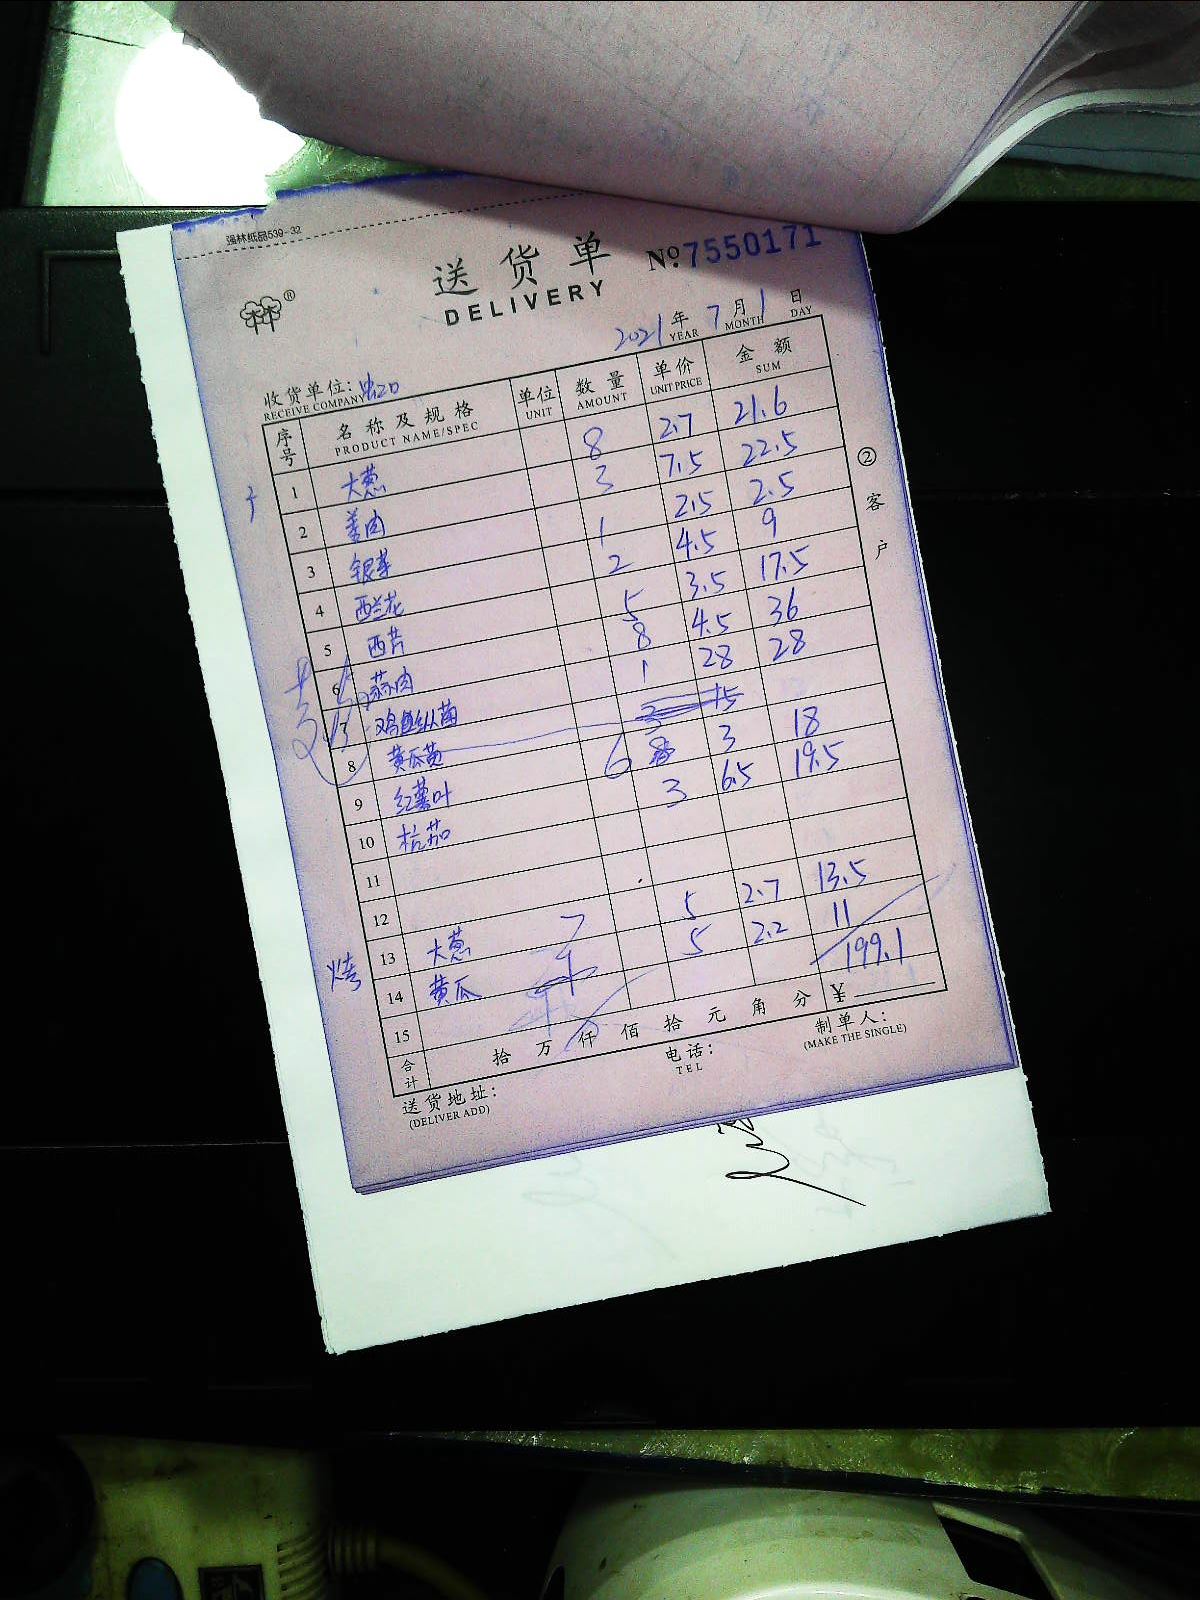 强林纸品539-32
送货单 №7550171
DELIVERY
®
2021年 7月 1日
YEAR MONTH DAY
收货单位:
RECEIVE COMPANY
序号 名称及规格 单位 数量 单价 金额
PRODUCT NAME/SPEC UNIT AMOUNT UNIT PRICE SUM
1 大葱 8 2.7 21.6
2 姜肉 3 7.5 22.5
3 银芽 1 2.5 2.5
4 西兰花 2 4.5 9
5 西芹 5 3.5 17.5
6 蒜肉 8 4.5 36
7 鸡枞菌 1 28 28
8 黄瓜
9 红薯叶 6 3 18
10 杭茄 3 6.5 19.5
11
12
13 大葱 5 2.7 13.5
14 黄瓜 5 2.2 11
15 199.1
合计 拾 万 仟 佰 拾 元 角 分 ¥
送货地址: 电话: 制单人:
(DELIVER ADD) TEL (MAKE THE SINGLE)
②客户
烤